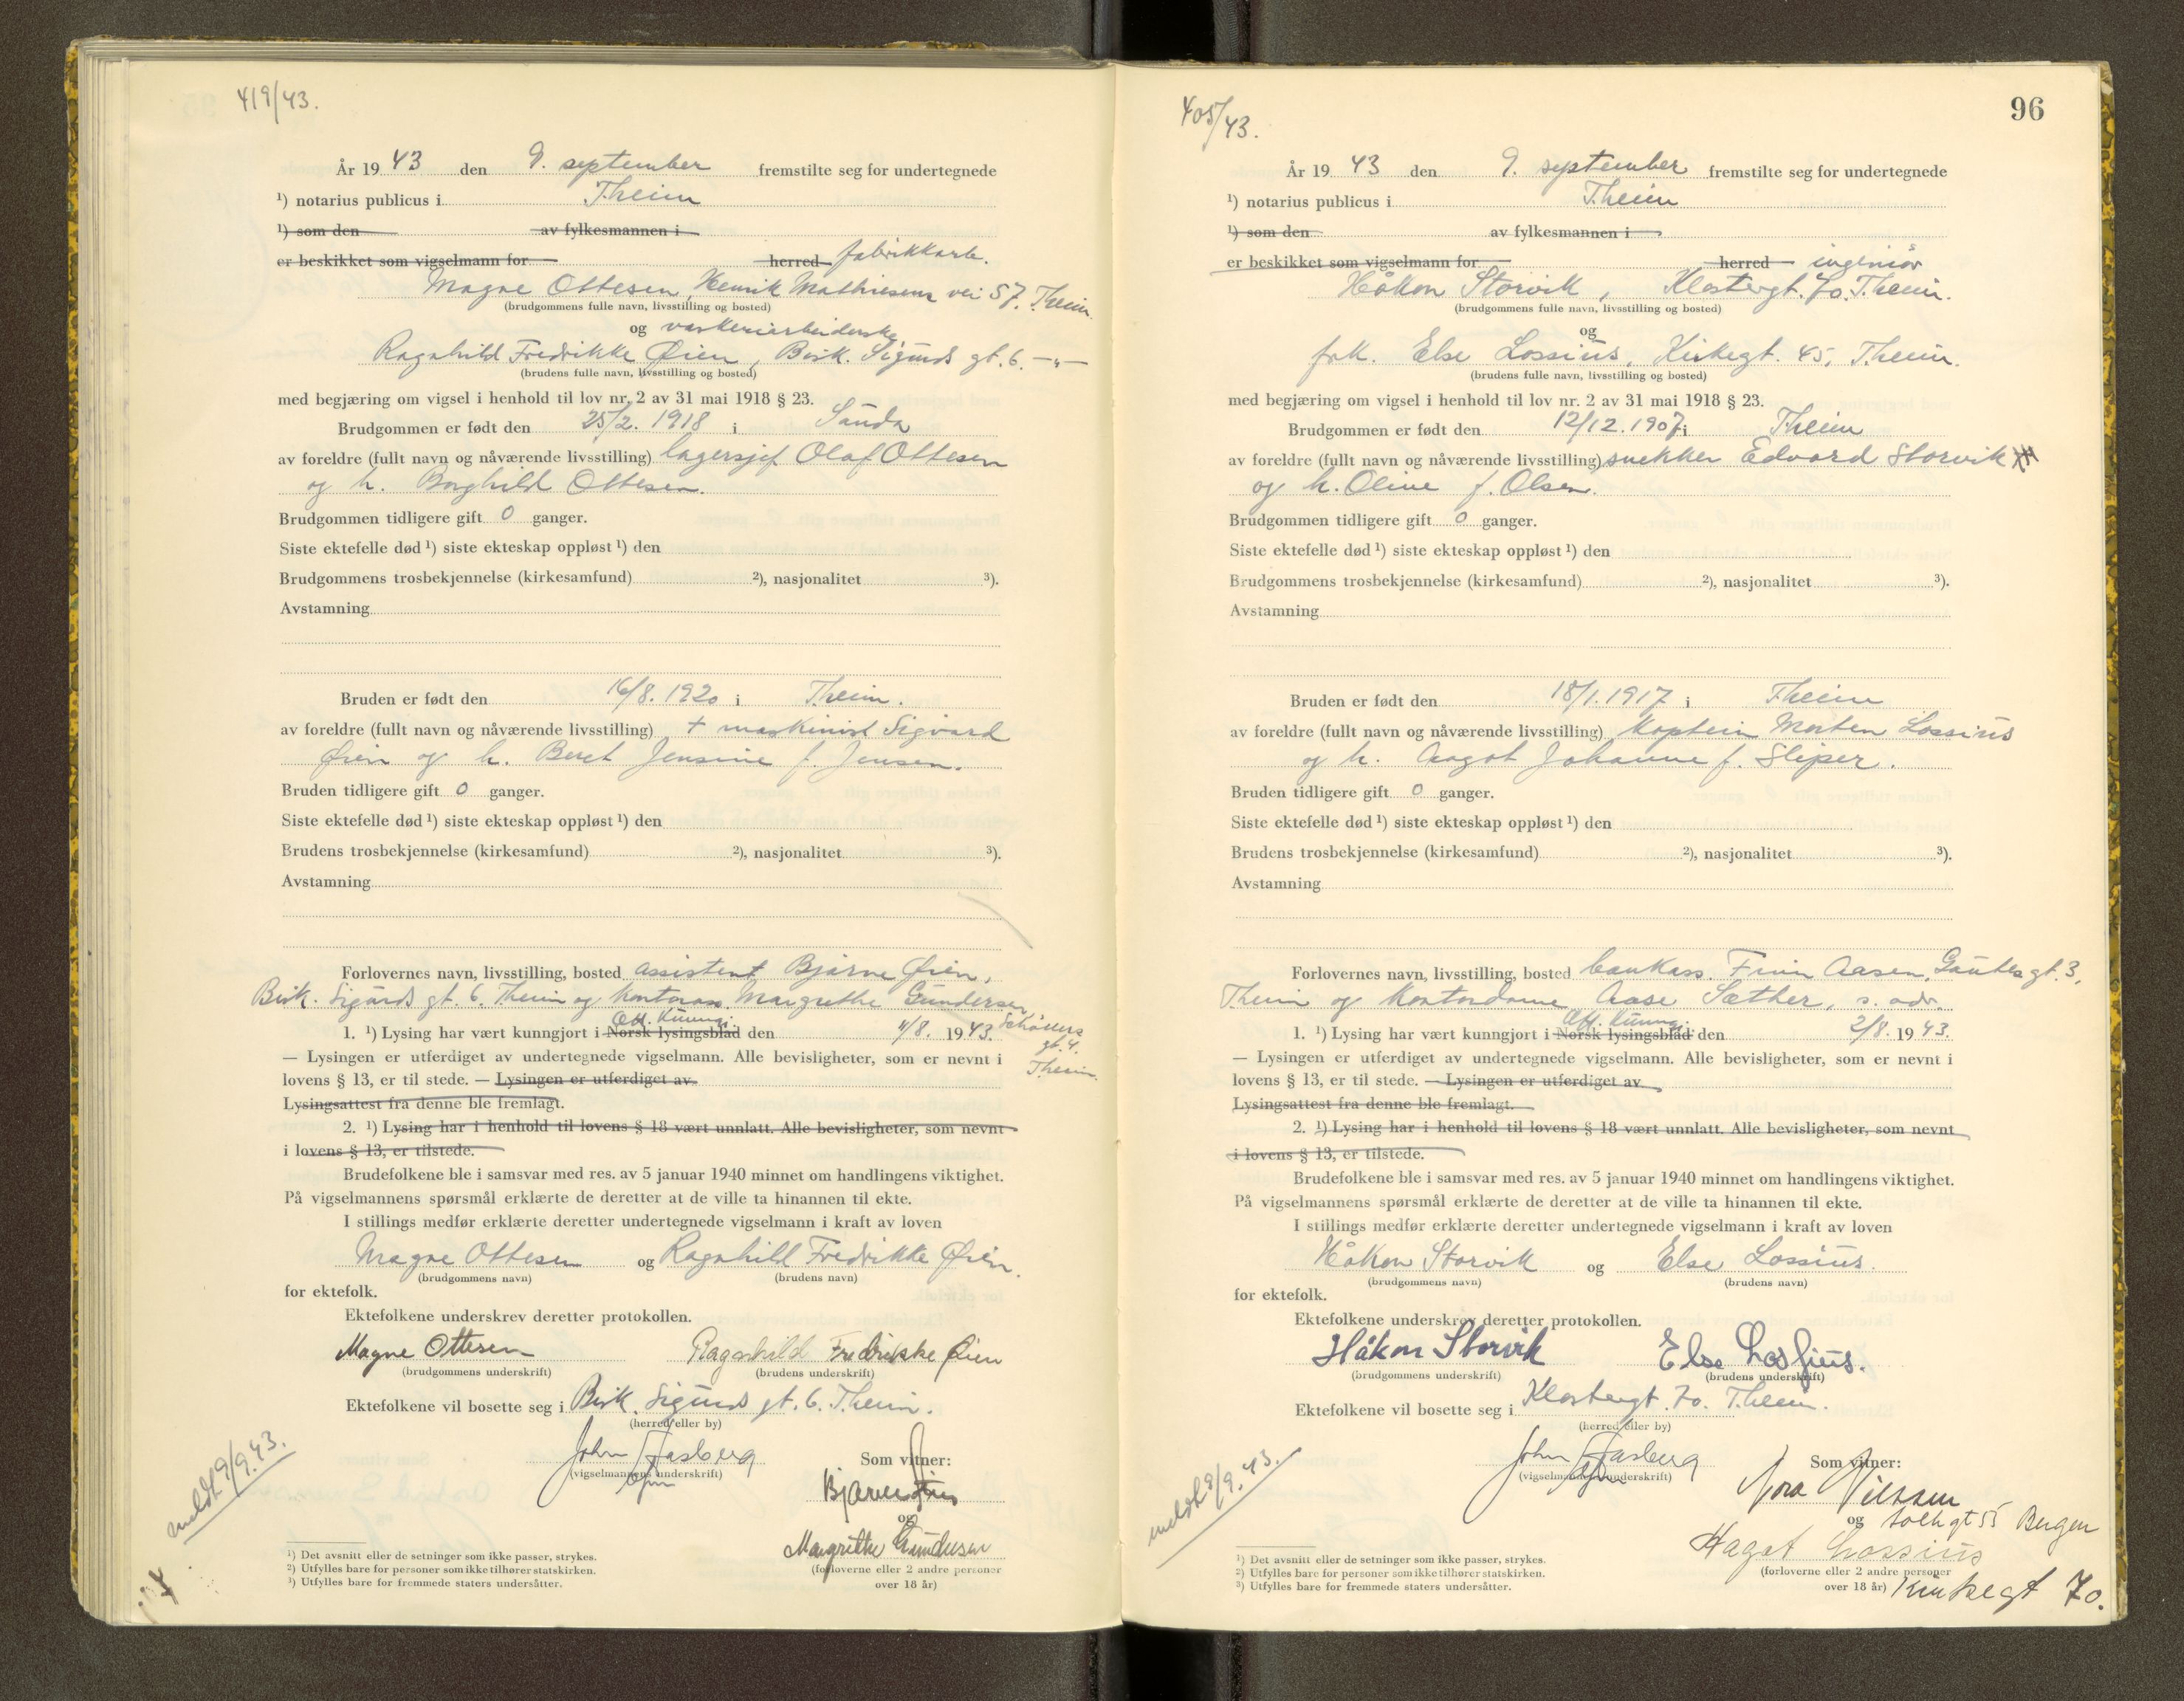 419/43.
År 1943 den 9. september fremstilte seg for undertegnede
¹) notarius publicus i Theim
¹) som den av fylkesmannen i
er beskikket som vigselmann for herred fabrikkarb.
Magne Ottesen, Henrik Mathiesens vei 57. Theim
(brudgommens fulle navn, livsstilling og bosted)
og vaskeriarbeiderske
Ragnhild Fredrikke Øien, Bisk. Sigurds gt. 6. —"—
(brudens fulle navn, livsstilling og bosted)
med begjæring om vigsel i henhold til lov nr. 2 av 31 mai 1918 § 23.
Brudgommen er født den 25/2. 1918 i Sunda
av foreldre (fullt navn og nåværende livsstilling) lagersjef Olaf Ottesen
og h. Borghild Ottesen.
Brudgommen tidligere gift 0 ganger.
Siste ektefelle død ¹) siste ekteskap oppløst ¹) den
Brudgommens trosbekjennelse (kirkesamfund) ²), nasjonalitet ³).
Avstamning
Bruden er født den 16/8. 1920 i Theim.
av foreldre (fullt navn og nåværende livsstilling) + maskinist Sigvard
Øien og h. Beret Jensine f. Jensen.
Bruden tidligere gift 0 ganger.
Siste ektefelle død ¹) siste ekteskap oppløst ¹) den
Brudens trosbekjennelse (kirkesamfund) ²), nasjonalitet ³).
Avstamning
Forlovernes navn, livsstilling, bosted assistent Bjarne Øien,
Bisk. Sigurds gt. 6. Theim og kontorass. Margrethe Gundersen,
Schøners
gt. 4.
Theim.
Off. Kunngj.
1. ¹) Lysing har vært kunngjort i Norsk lysingsblad den 11/8. 1943.
— Lysingen er utferdiget av undertegnede vigselmann. Alle bevisligheter, som er nevnt i
lovens § 13, er til stede. — Lysingen er utferdiget av
Lysingsattest fra denne ble fremlagt.
2. ¹) Lysing har i henhold til lovens § 18 vært unnlatt. Alle bevisligheter, som nevnt
i lovens § 13, er tilstede.
Brudefolkene ble i samsvar med res. av 5 januar 1940 minnet om handlingens viktighet.
På vigselmannens spørsmål erklærte de deretter at de ville ta hinannen til ekte.
I stillings medfør erklærte deretter undertegnede vigselmann i kraft av loven
Magne Ottesen og Ragnhild Fredrikke Øien.
(brudgommens navn) (brudens navn)
for ektefolk.
Ektefolkene underskrev deretter protokollen.
Magne Ottesen Ragnhild Fredrikke Øien
(brudgommens underskrift) (brudens underskrift)
Ektefolkene vil bosette seg i Bisk. Sigurds gt. 6. Theim.
(herred eller by)
John Aasberg
(vigselmannens underskrift)
Som vitner:
Bjarne Øien
og
Margrethe Gundersen
(forloverne eller 2 andre personer
over 18 år)
meldt 9/9.43.
¹) Det avsnitt eller de setninger som ikke passer, strykes.
²) Utfylles bare for personer som ikke tilhører statskirken.
³) Utfylles bare for fremmede staters undersåtter.
405/43.
96
År 1943 den 9. september fremstilte seg for undertegnede
¹) notarius publicus i Theim
¹) som den av fylkesmannen i
er beskikket som vigselmann for herred ingeniør
Håkon Storvik, Klostergt. 70. Theim.
(brudgommens fulle navn, livsstilling og bosted)
og
frk. Else Lossius, Kirkegt. 45, Theim.
(brudens fulle navn, livsstilling og bosted)
med begjæring om vigsel i henhold til lov nr. 2 av 31 mai 1918 § 23.
Brudgommen er født den 12/12. 1907 i Theim
av foreldre (fullt navn og nåværende livsstilling) snekker Edvard Storvik
og h. Oline f. Olsen.
Brudgommen tidligere gift 0 ganger.
Siste ektefelle død ¹) siste ekteskap oppløst ¹) den
Brudgommens trosbekjennelse (kirkesamfund) ²), nasjonalitet ³).
Avstamning
Bruden er født den 18/1. 1917 i Theim
av foreldre (fullt navn og nåværende livsstilling) kaptein Morten Lossius
og h. Aagot Johanne f. Sliper.
Bruden tidligere gift 0 ganger.
Siste ektefelle død ¹) siste ekteskap oppløst ¹) den
Brudens trosbekjennelse (kirkesamfund) ²), nasjonalitet ³).
Avstamning
Forlovernes navn, livsstilling, bosted bankass. Finn Aasen, Gautes gt. 3,
Theim og kontordame Aase Sæther, s. adr.
Off. Kunngj.
1. ¹) Lysing har vært kunngjort i Norsk lysingsblad den 2/8. 1943.
— Lysingen er utferdiget av undertegnede vigselmann. Alle bevisligheter, som er nevnt i
lovens § 13, er til stede. — Lysingen er utferdiget av
Lysingsattest fra denne ble fremlagt.
2. ¹) Lysing har i henhold til lovens § 18 vært unnlatt. Alle bevisligheter, som nevnt
i lovens § 13, er tilstede.
Brudefolkene ble i samsvar med res. av 5 januar 1940 minnet om handlingens viktighet.
På vigselmannens spørsmål erklærte de deretter at de ville ta hinannen til ekte.
I stillings medfør erklærte deretter undertegnede vigselmann i kraft av loven
Håkon Storvik og Else Lossius.
(brudgommens navn) (brudens navn)
for ektefolk.
Ektefolkene underskrev deretter protokollen.
Håkon Storvik Else Lossius.
(brudgommens underskrift) (brudens underskrift)
Ektefolkene vil bosette seg i Klostergt. 70. Theim.
(herred eller by)
John Aasberg
(vigselmannens underskrift)
Som vitner:
Nora Nilssen
og Tollb gt 55 Bergen
Aagot Lossius
(forloverne eller 2 andre personer
over 18 år) Kirkegt 70.
meldt 9/9.43.
¹) Det avsnitt eller de setninger som ikke passer, strykes.
²) Utfylles bare for personer som ikke tilhører statskirken.
³) Utfylles bare for fremmede staters undersåtter.